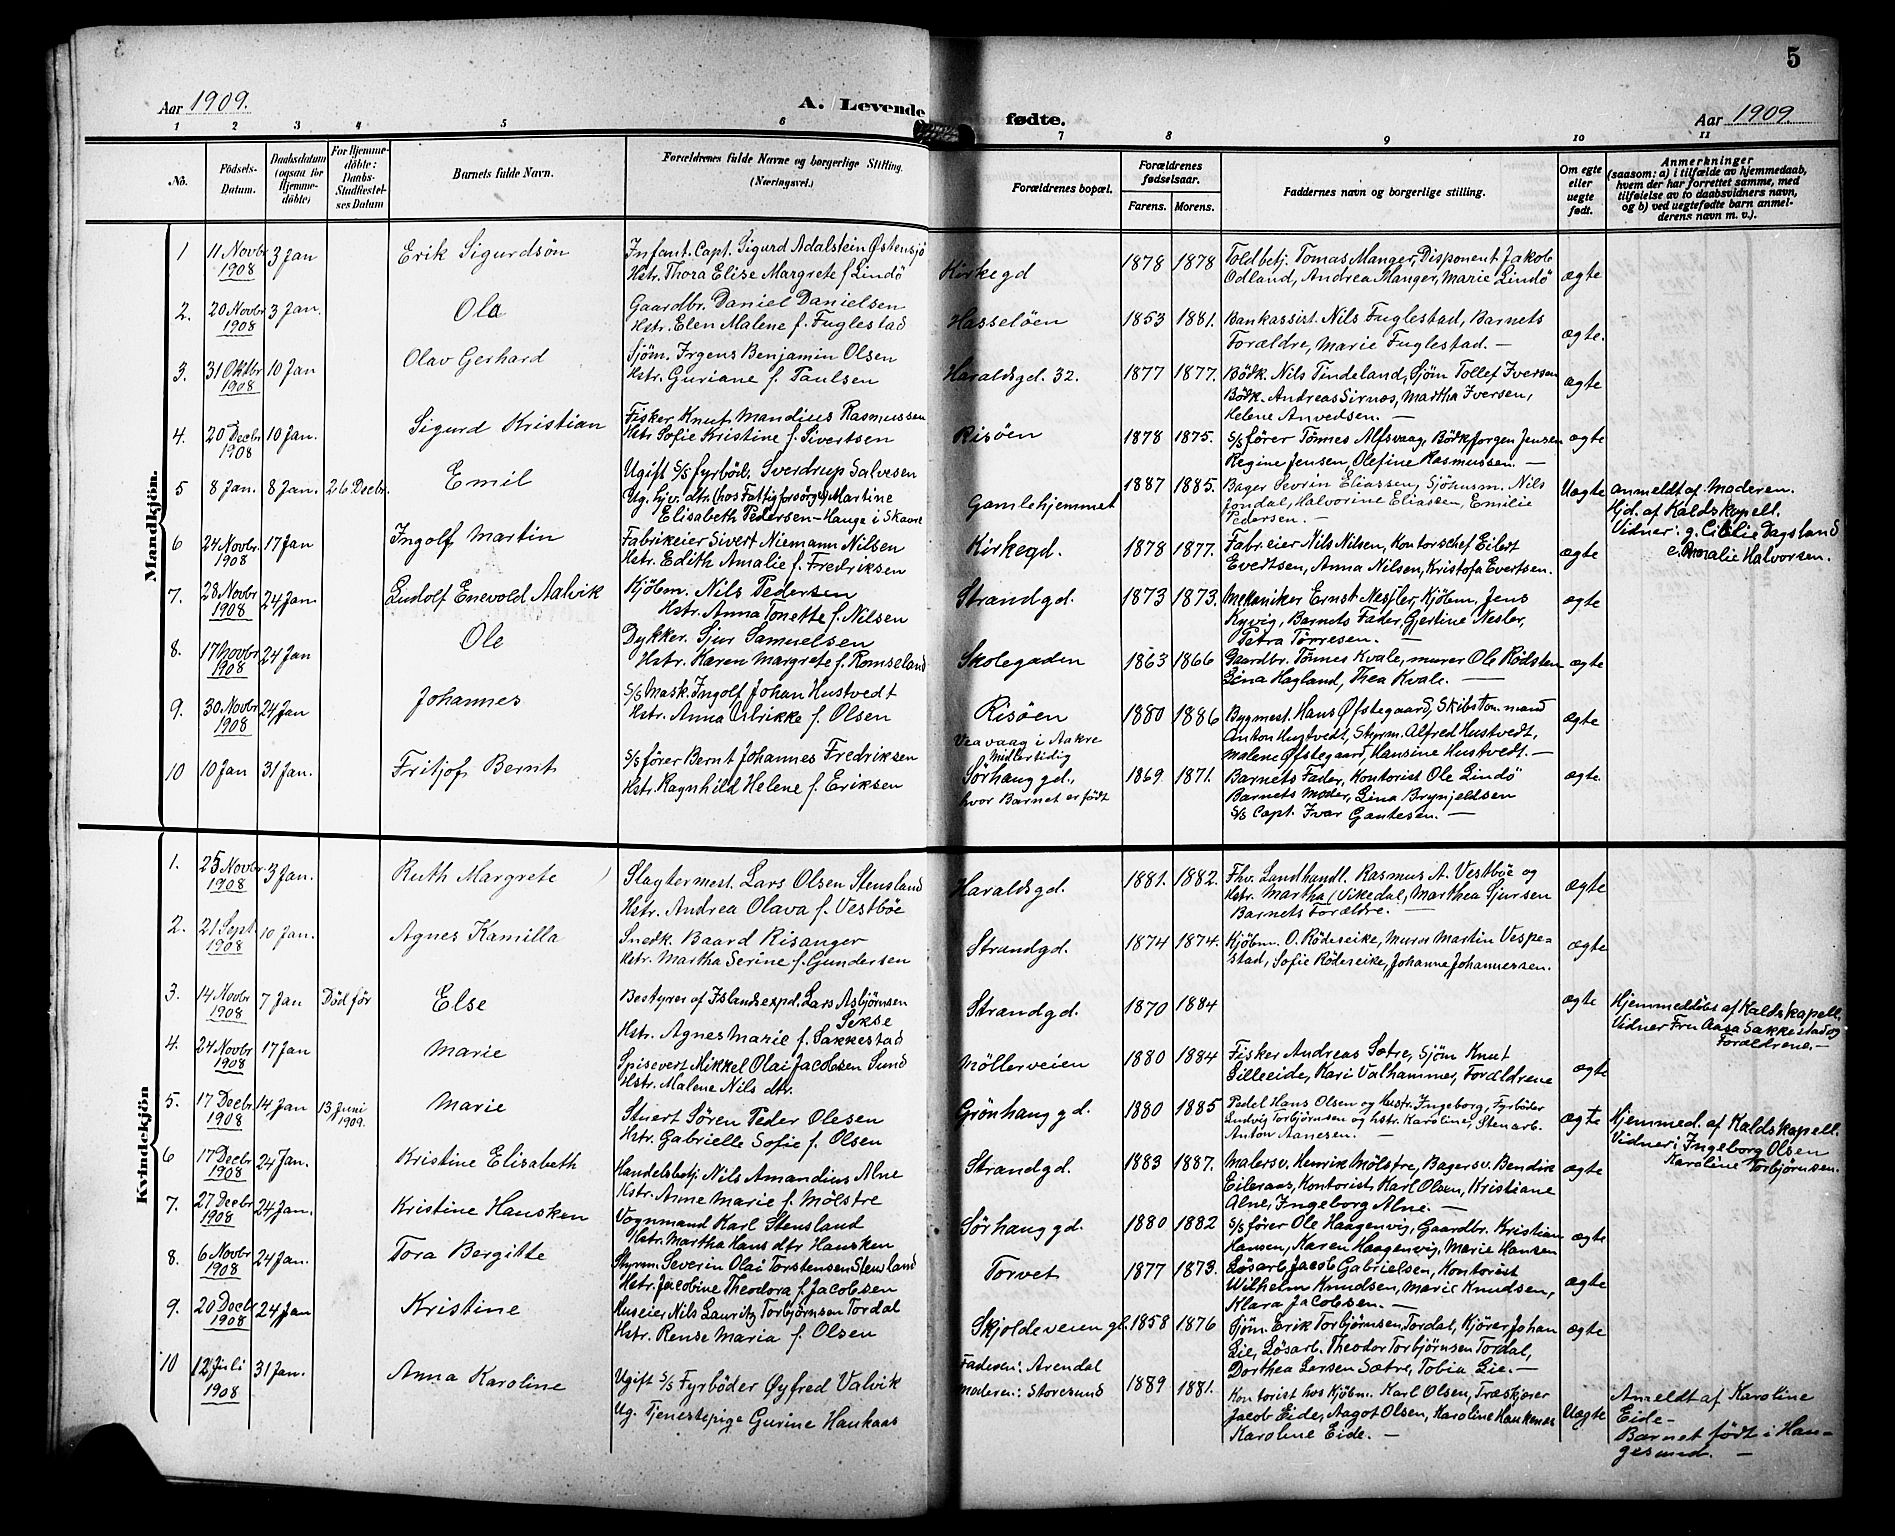 5
Aar 1909.
A. Levende
fødte.
Aar 1909
1 2 3 4 5 6 7 8 9 10 11
No.
Fødsels-
Datum.
Daabsdatum
(ogsaa for
Hjemme-
døbte)
For Hjemme-
døbte:
Daabs-
Stadfæstel-
ses Datum
Barnets fulde Navn.
Forældrenes fulde Navne og borgerlige Stilling.
(Næringsvei.)
Forældrenes bopæl.
Forældrenes
fødselsaar.
Farens. Morens.
Faddernes navn og borgerlige stilling.
Om egte
eller
uegte
født.
Anmerkninger
(saasom: a) i tilfælde av hjemmedaab,
hvem der har forrettet samme, med
tilføielse av to daabsvidners navn,
og b) ved uegtefødte barn anmel-
derens navn m. v.).
Mandkjön.
1 11 Novbr 1908 3 Jan Erik Sigurdsön
Infant. Capt. Sigurd Adalstein Østensjö
Hstr. Thora Elise Margrete f Lindö
Kirkegd 1878 1878
Toldbetj. Tomas Manger, Disponent Jakob
Odland, Andrea Manger, Marie Lindö
ægte
2. 20 Novbr 1908 3 Jan. Ola
Gaardbr. Daniel Danielsen
Hstr. Elen Malene f. Fuglestad
Hasselöen 1853 1881.
Bankassist. Nils Fuglestad, Barnets
Forældre, Marie Fuglestad. —
ægte.
3. 31 Oktbr 1908 10 Jan Olav Gerhard
Sjöm. Irgens Benjamin Olsen
Hstr. Guriane f. Paulsen
Haraldsgd. 32. 1877 1877.
Bödk. Nils Tindeland, Sjöm Tollef Iversen
Bödk. Andreas Sirnes, Martha Iversen,
Helene Anvedsen. —
ægte
4. 20 Decbr 1908 10 Jan. Sigurd Kristian
Fisker Knut Mandius Rasmussen
Hstr Sofie Kristine f. Sivertsen
Risöen 1878 1875.
S/S förer Tönnes Alfsvaag, Bödk Jørgen Jensen
Regine Jensen, Olefine Rasmussen. —
ægte
5 8 Jan. 8 Jan. 26 Decbr. Emil
Ugift S/S fyrböd. Sverdrup Salvesen
Ug. hjv. dtr. (hos Fattigforsörge) Martine
Elisabeth Pedersen - Hauge i Skaare
Gamlehjemmet 1887 1885.
Bager Sevrin Eliassen, Sjöhusm. Nils
Jondal, Halvorine Eliassen, Emilie
Pedersen. —
Uægte
Anmeldt af Moderen.
Hjd. af Kaldskapell.
Vidner: g. Cicilie Dagsland
Amalie Halvorsen.
6 24 Novbr 1908 17 Jan Ingolf Martin
Fabrikeier Sivert Niemann Nilsen
Hstr. Edith Amalie f. Fredriksen
Kirkegd. 1878 1877.
Fabr.eier Nils Nilsen, Kontorschef Eilert
Evertsen, Anna Nilsen, Kristofa Evertsen.
ægte
7. 28 Novbr 1908 24 Jan. Ludolf Enevold Aalvik
Kjöbm. Nils Pedersen
Hstr. Anna Tonette f. Nilsen
Strandgd. 1873 1873.
Mekaniker Ernst Nessler, Kjöbm. Jens
Kyvig, Barnets Fader, Gjertine Nesler,
Petra Törresen. —
ægte
8. 17 Novbr 1908 24 Jan Ole
Dykker. Sjur Samuelsen
Hstr. Karen Margrete f. Romseland
Skolegaden 1863 1866
Gaardbr. Tönnes Kvale, murer Ole Rödsten
Lina Hagland, Thea Kvale. —
ægte
9. 30 Novbr 1908 24 Jan Johannes
S/S Mask. Ingolf Johan Hustvedt
Hstr. Anna Ulrikke f. Olsen
Risöen 1880 1886
Bygmest. Hans Øfstegaard, Skibstømmand
Anton Hustvedt, Styrm. Alfred Hustvedt,
Malene Øfstegaard, Hansine Hustvedt. —
ægte
10 10 Jan 31 Jan. Fritjof Bernt
S/S förer Bernt Johannes Fredriksen
Hstr. Ragnhild Helene f. Eriksen
Veavaag i Aakre
Midlertidig
Sörhauggd.,
hvor Barnet er født
1869 1871.
Barnets Fader, Kontorist Ole Lindö
Barnets Moder, Lina Brynjeldsen
S/S Capt. Ivar Gautesen. —
ægte.
Kvindekjön
1. 25 Novbr. 1908 3 Jan. Ruth Margrete
Slagtermest. Lars Olsen Stensland
Hstr. Andrea Olava f. Vestböe
Haraldsgd. 1881. 1882.
Fhv. Landhandl. Rasmus A. Vestböe og
Hstr. Martha, Vikedal, Marthea Sjursen
Barnets Forældre. —
ægte
2. 21 Sept. 1908 10 Jan. Agnes Kamilla
Snedk. Baard Risanger
Hstr. Martha Serine f. Gundersen
Strandgd. 1874 1874.
Kjöbm. O. Rödseike, Murer Martin Vespe-
stad, Sofie Rödseike, Johanne Johannessen.
ægte
3. 14 Novbr 1908 7 Jan Död før Else
Bestyrer af Islandsexpd. Lars Asbjørnsen
Sekse
Hstr. Agnes Marie f. Sakkestad
Strandgd. 1870 1884
ægte
Hjemmedöbt af Kaldskapell.
Vidner Fru Aasa Sakkestad og
Forældrene. —
4. 24 Novbr 1908 17 Jan Marie
Spisevert Mikkel Olai Jacobsen Sund
Hstr. Malene Nils dtr.
Möllerveien 1880 1884
Fisker Andreas Sætre, Sjøm Knut
Lilleeide, Kari Valhammer, Forældrene
ægte
5. 17 Decbr 1908 14 Jan 13 Juni 1909. Marie
Stuert Sören Peder Olesen
Hstr. Gabrielle Sofie f. Olsen
Grönhauggd. 1880 1885
Pedel Hans Olsen og Hustr. Ingeborg, Fyrböder
Ludvig Torbjörnsen og hstr. Karoline, Stenarb.
Anton Aanesen. —
ægte
Hjemmed. af Kaldskapell.
Vidner: Ingeborg Olsen
Karoline Torbjörnsen.
6 17 Decbr 1908 24 Jan. Kristine Elisabeth
Handelsbetj. Nils Amandius Alne
Hstr. Anne Marie f. Mölstre
Strandgd. 1883 1887.
Malersv. Henrik Mölstre, Bagersv. Bendik
Eileraas, Kontorist Karl Olsen, Kristiane
Alne, Ingeborg Alne. —
ægte
7. 27 Decbr 1908 24 Jan. Kristine Hausken
Vognmand Karl Stensland
Hstr. Martha Hans dtr Hausken
Sörhauggd. 1880 1882
S/S förer Ole Haagenvig, Gaardbr. Kristian
Hansen, Karen Haagenvig, Marie Hansen
ægte
8. 6 Novbr 1908 24 Jan. Tora Bergitte
Styrm. Severin Olai Torstensen Stensland
Hstr. Jacobine Theodora f. Jacobsen
Torvet 1877 1873.
Lösarb. Jacob Gabrielsen, Kontorist
Wilhelm Knudsen, Marie Knudsen,
Klara Jacobsen. —
ægte
9. 20 Decbr 1908 24 Jan Kristine
Huseier, Nils Lauritz Torbjörnsen Tordal
Hstr. Rense Maria f. Olsen
Skjoldeveien gl. 1858 1876
Sjöm. Erik Torbjörnsen Tordal, Kjører Johan
Lie, Lösarb. Theodor Torbjörnsen Tordal,
Dorthea Larsen Sætre, Tobia Lie. —
ægte
10 12 Juli 1908 31 Jan. Anna Karoline
Ugift S/S Fyrböder Øyfred Valvik
Ug. Tjenestepige Gurine Haukaas
Faderen: Arendal
Moderen: Storesund
1889 1881.
Kontorist hos Kjöbm. Karl Olsen, Træskjærer
Jacob Eide, Aagot Olsen, Karoline Haukenæs
Karoline Eide. —
Uægte
Anmeldt af Karoline
Eide-
Barnet født i Hau-
gesund. —